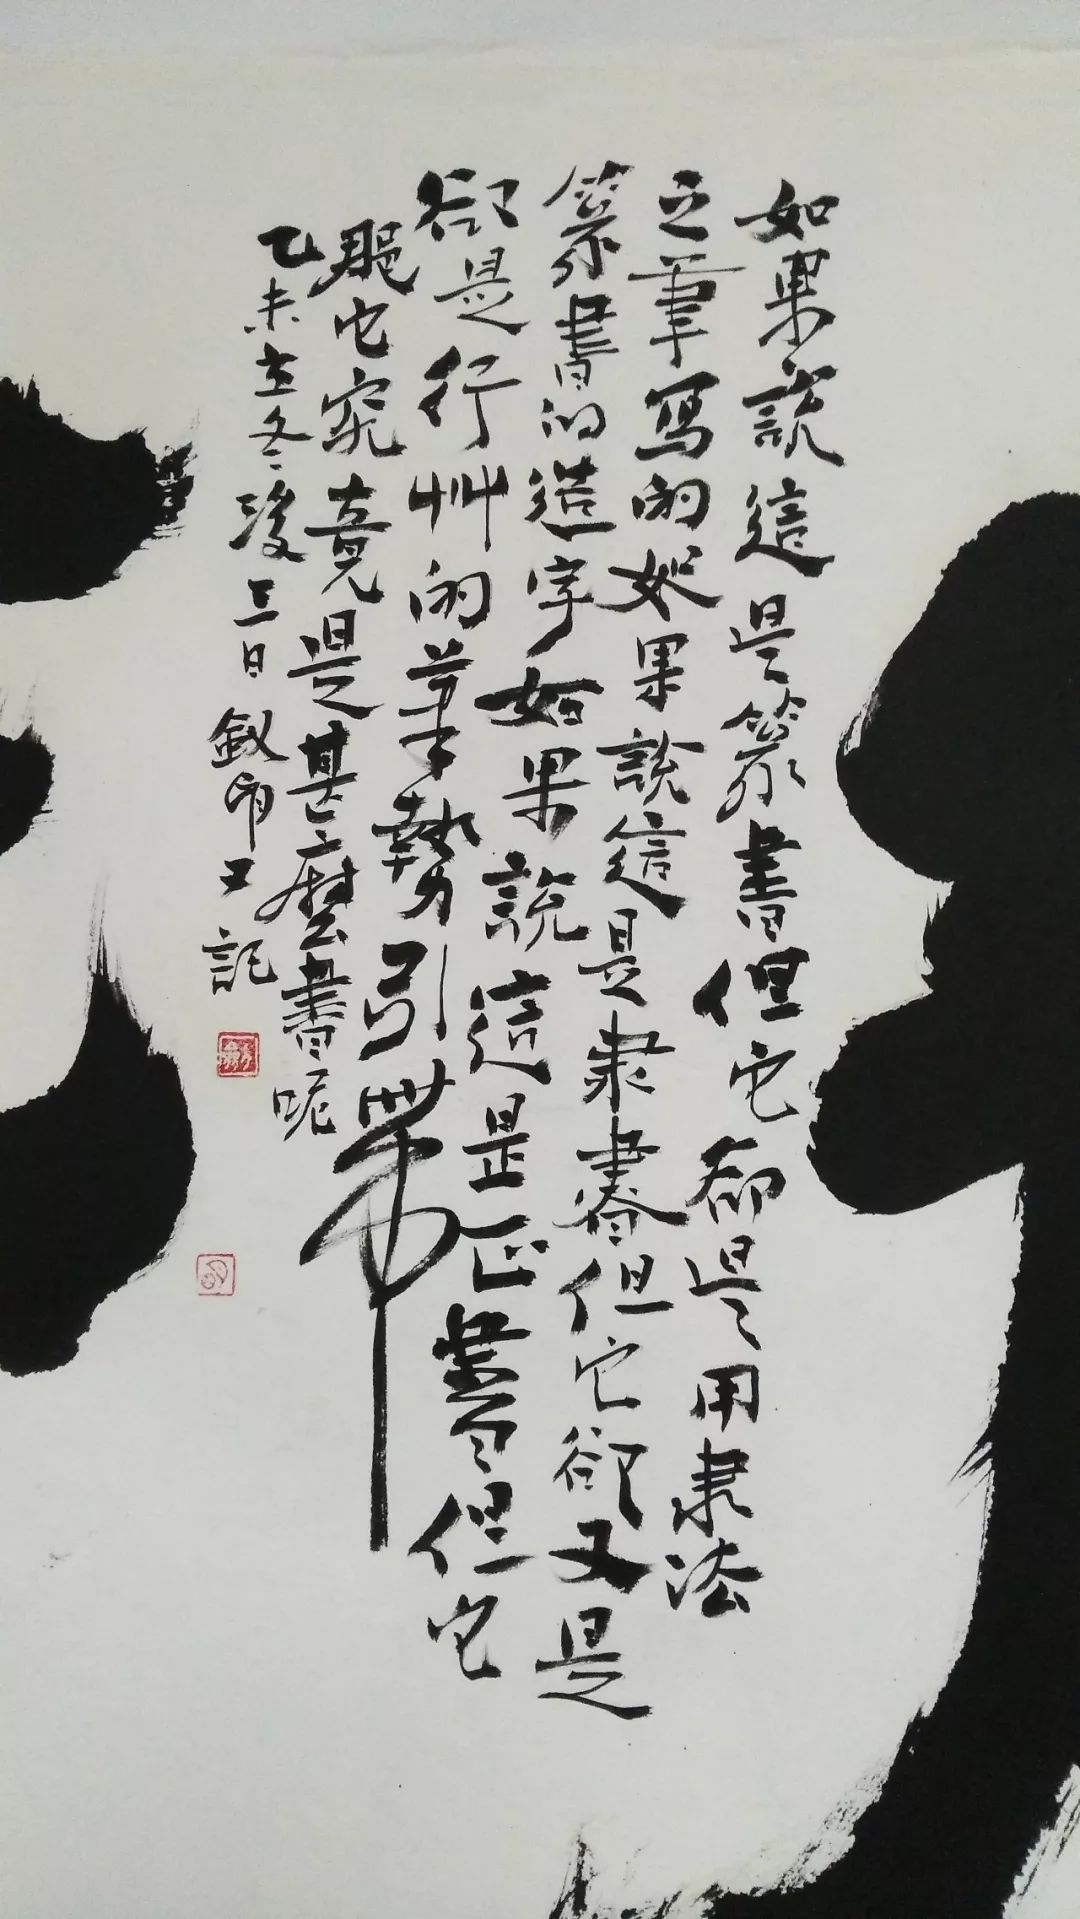 如果說這是篆書但它卻是用隶法
之筆寫的如果說這是隶書但它卻又是
篆書的造字如果說這是正書但它
卻是行艸的筆勢引帶
那它究竟是甚麼書呢
乙未立冬後三日釵命又記